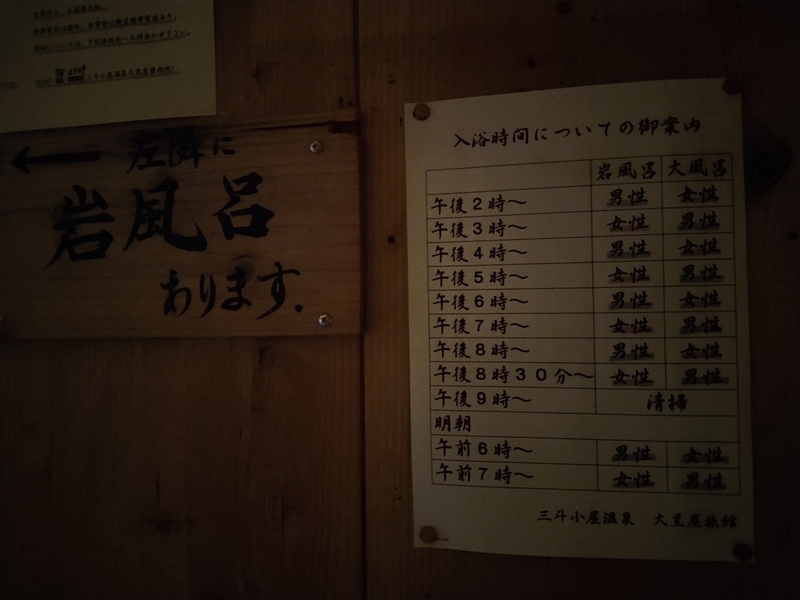 三斗小屋温泉大黒屋
左隣に
岩風呂
あります.
入浴時間についての御案内
岩風呂 大風呂
午後2時〜 男性 女性
午後3時〜 女性 男性
午後4時〜 男性 女性
午後5時〜 女性 男性
午後6時〜 男性 女性
午後7時〜 女性 男性
午後8時〜 男性 女性
午後8時30分〜 女性 男性
午後9時〜 清掃
明朝
午前6時〜 男性 女性
午前7時〜 女性 男性
三斗小屋温泉 大黒屋旅館